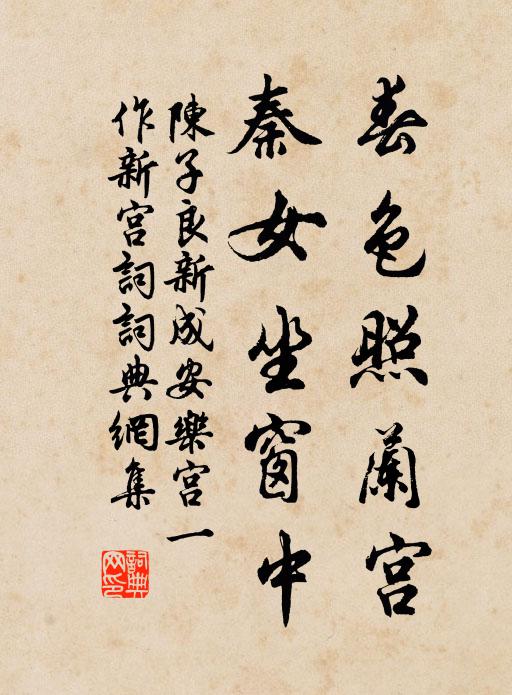 春色照蘭宫
秦女坐窗中
陳子良新成安樂宫一
作新宫詞詞典網集
詞典网印